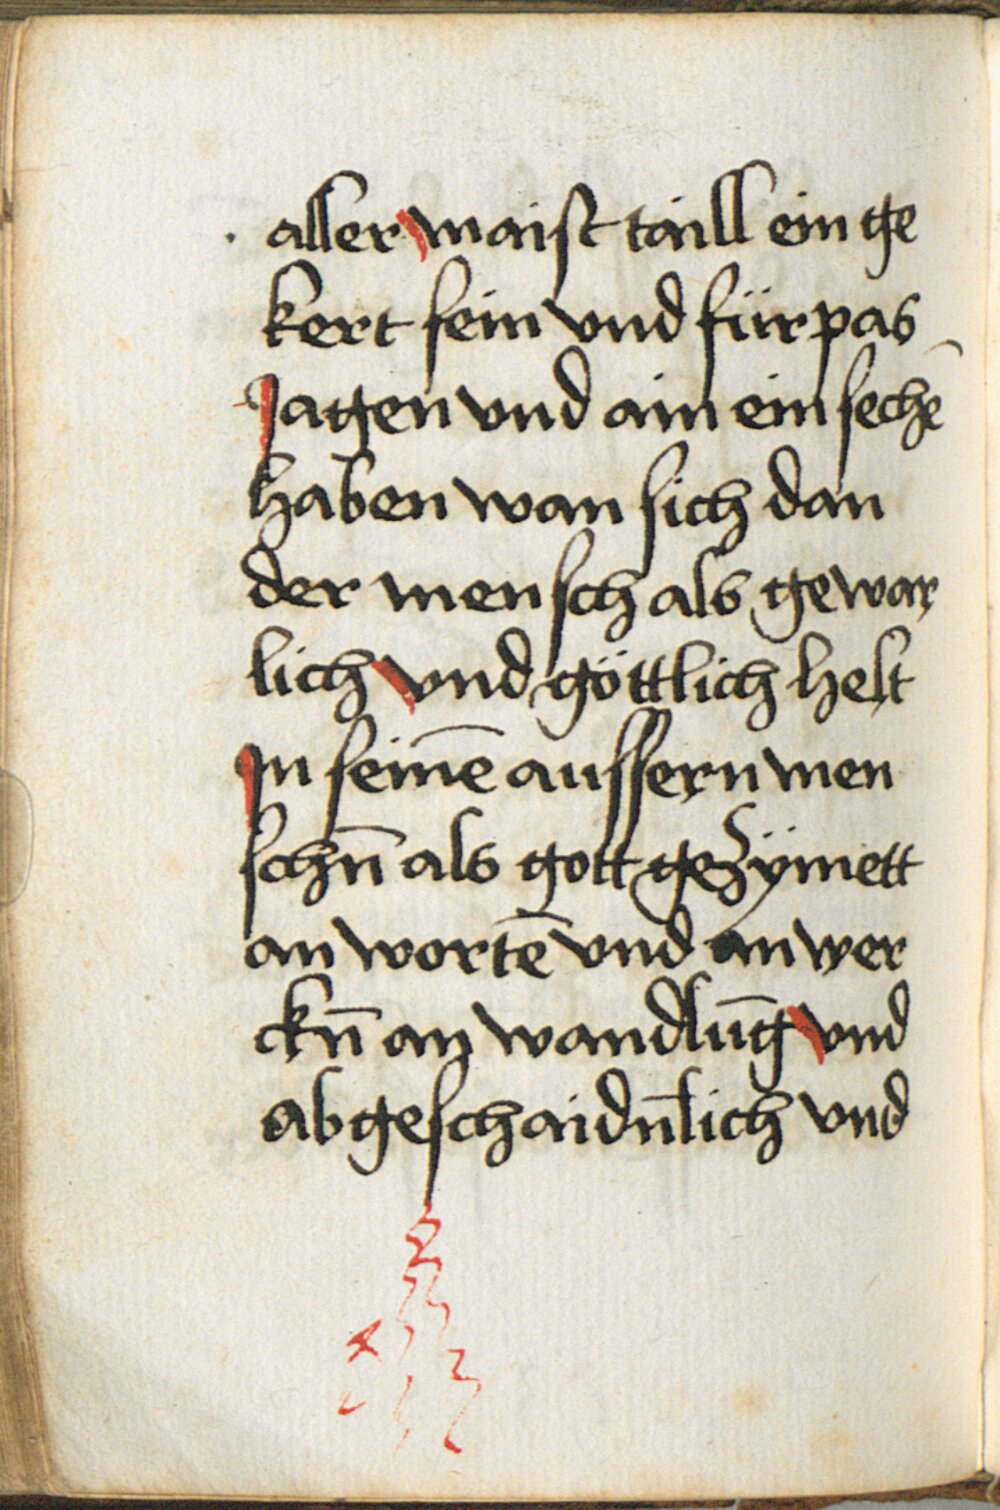 aller maist taill ein ge
kert sein vnd fürpas
Jagen vnd ain ein sechē
haben wan sich dan
der mensch als gewar
lich vnd göttlich helt
Jn seinē aussern men
schn̄ als gott gezÿmett
an wortē vnd an wer
ckn̄ an wandlūg vnd
abgeschaidn̄lich vnd